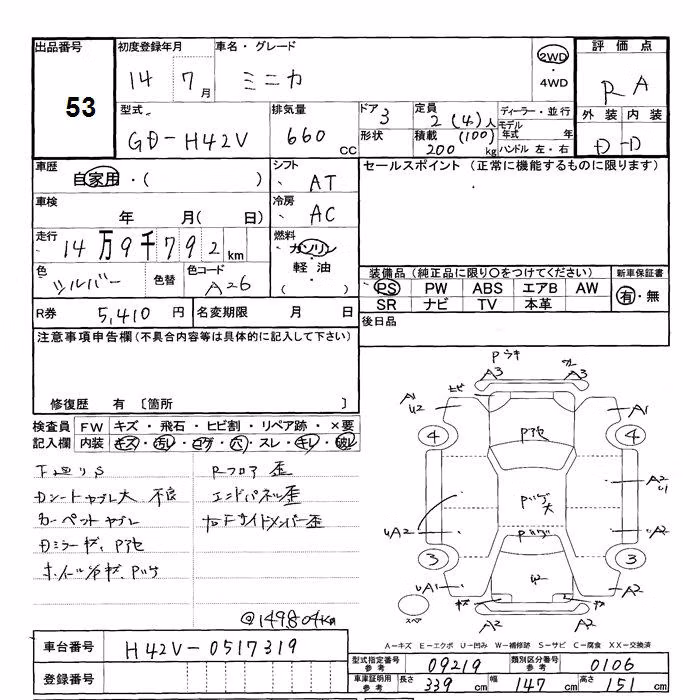 出品番号
53
初度登録年月
14 7月
車名・グレード
ミニカ
2WD
・
4WD
評価点
R A
外装 内装
D-D
型式
GD-H42V
排気量
660 cc
ドア 3
形状
定員 2(4)人
積載 (100)
200 kg
ディーラー・並行
モデル
年式 年
ハンドル 左・右
車歴
自家用・( )
シフト
AT
セールスポイント (正常に機能するものに限ります)
車検
年 月( 日)
冷房
AC
走行
14万9千792km
燃料
ガソリン
・
軽油
( )
色
シルバー
色替
色コード
A26
装備品(純正品に限り○をつけてください)
PS PW ABS エアB AW
SR ナビ TV 本革
新車保証書
有・無
R券 5,410 円
名変期限 月 日
後日品
注意事項申告欄(不具合内容等は具体的に記入して下さい)
修復歴 有 〔箇所 〕
検査員 FW キズ・飛石・ヒビ割・リペア跡・×要
記入欄 内装 キズ・汚レ・コゲ・穴・スレ・キレ・破レ
下廻りS
Rフロア歪
Dシートヤブレ大 不良
エンドパネル歪
カーペットヤブレ
右Fサイドメンバー歪
Dミラーキズ、Pアセ
@149804Km
Pウキ
A3 A3
ヒビ
A1
U2
A1
4 4
Pアセ
A2
U1
Pハゲ大
UA2
A2
Pハゲ
3 3
UA1
W
A2
スペア
A2 A2
A-キズ E-エクボ U-凹み W-補修跡 S-サビ C-腐食 XX-交換済
車台番号 H42V-0517319
登録番号
型式指定番号
参考
09219
類別区分番号
参考
0106
車庫証明用
参考
長さ 339 cm 幅 147 cm 高さ 151 cm